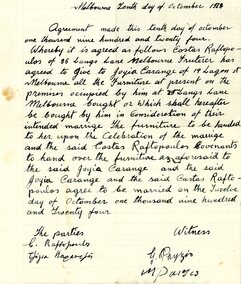 Melbourne Tenth day of Octomber 1924
Agreement made this tenth day of octomber
one thousand nine hundred and twenty four.
Whereby it is agreed as follows Costas Raftopo-
ulos of 36 Langs Lane Melbourne Fruiterer has
agreed to Give to Jogia Carange of 19 Lagon st
Melbourne all the Furniture at present on the
premises occupied by him at 36 Langs Lane
Melbourne bought or which shall hereafter
be bought by him in Consideration of their
intended marriage The furniture to be handed
to her upon the Celebration of the marrige
and the said Costas Raftopoulos Covenants
to hand over the furniture as aforesaid to
the said Jogia Carange and the said
Jogia Carange and the said Costas Rafto-
poulos agree to be married on the Twelve
day of Octomber one thousand nine hundred
and Twenty four.
The parties Witness
C. Raftopoulos